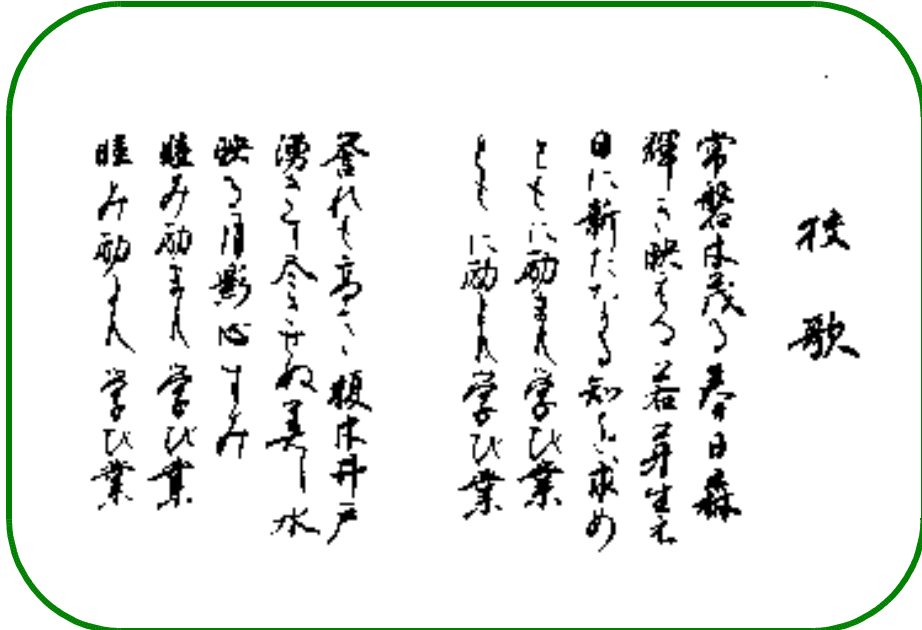 校歌
常磐木茂る春日森
輝き映ゆる若芽生え
日に新たなる知を求め
ともに励まん学び業
ともに励まん学び業
誉れも高き榎木井戸
湧きて尽きせぬ美し水
映る月影心すみ
睦み励まん学び業
睦み励まん学び業